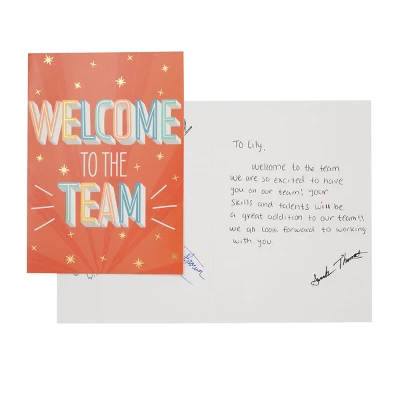 WELCOME
TO THE
TEAM
To Lily,
Welcome to the team
we are so excited to have
you on our team! your
skills and talents will be
a great addition to our team!!
we all look forward to working
with you.